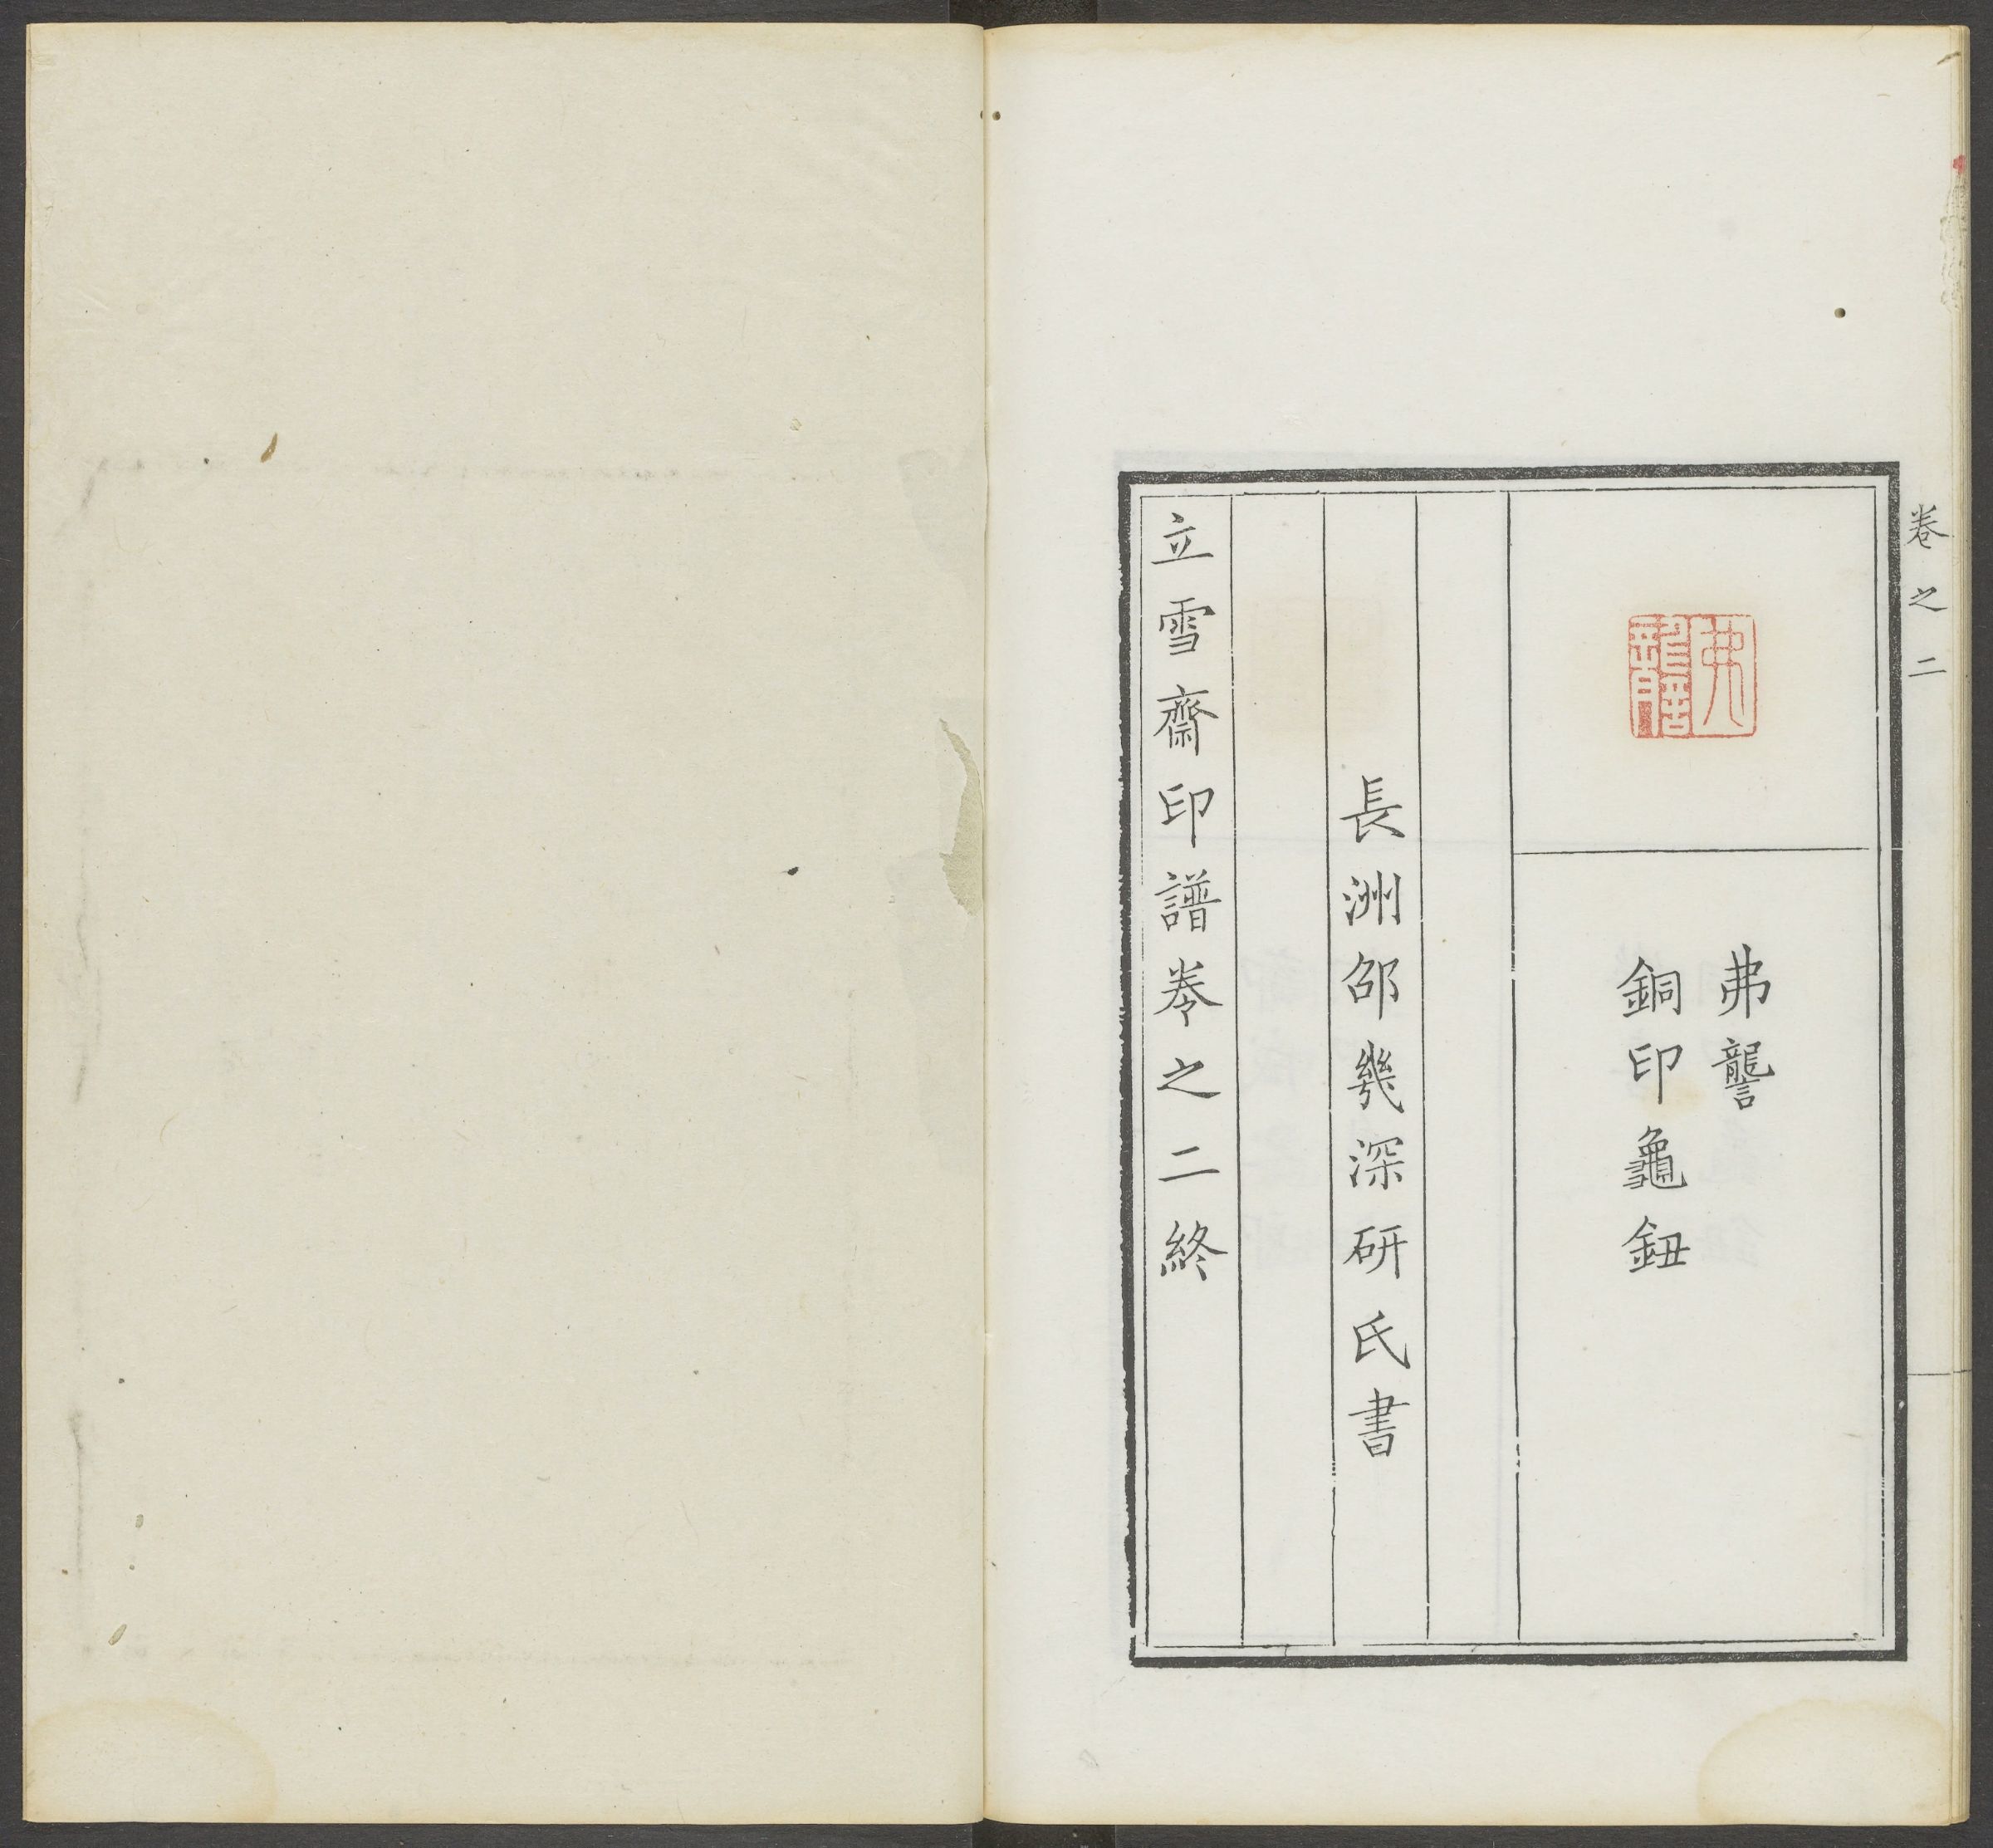 卷之二
弗讋
弗讋
銅印龜鈕
長洲邵幾深研氏書
立雪齋印譜卷之二終